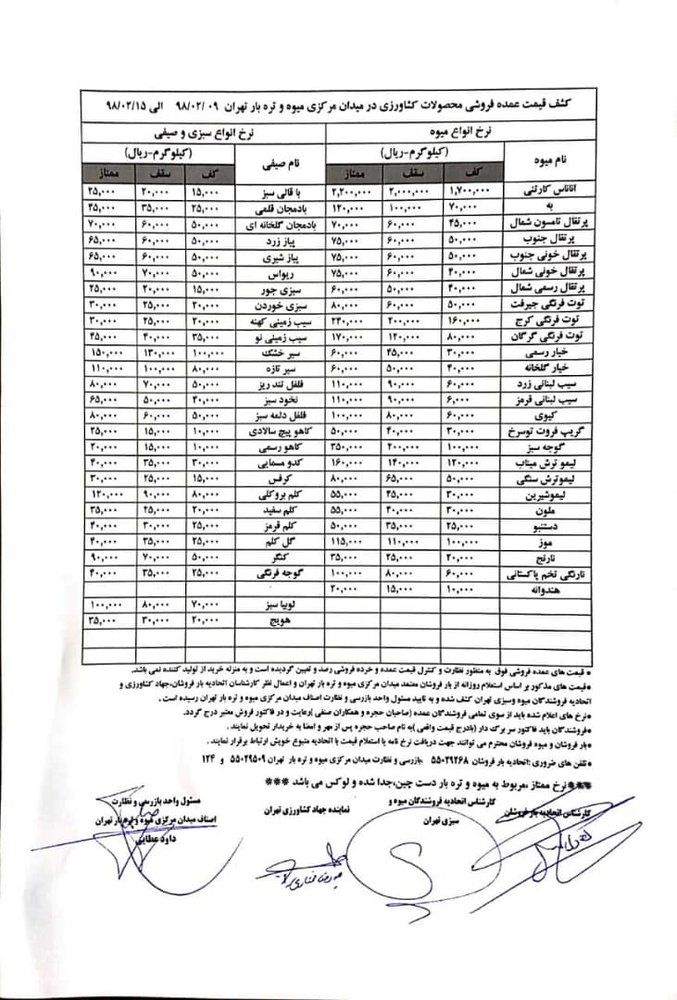 کشف قیمت عمده فروشی محصولات کشاورزی در میدان مرکزی میوه و تره بار تهران ۹۸/۰۲/۰۹ الی ۹۸/۰۲/۱۵
نرخ انواع میوه نرخ انواع سبزی و صیفی
نام میوه (کیلوگرم-ریال) نام صیفی (کیلوگرم-ریال)
کف سقف ممتاز کف سقف ممتاز
اناناس کارتنی ۱,۷۰۰,۰۰۰ ۲,۰۰۰,۰۰۰ ۲,۲۰۰,۰۰۰ با قالی سبز ۱۵,۰۰۰ ۲۰,۰۰۰ ۲۵,۰۰۰
به ۷۰,۰۰۰ ۱۰۰,۰۰۰ ۱۲۰,۰۰۰ بادمجان قلمی ۲۵,۰۰۰ ۳۵,۰۰۰ ۴۵,۰۰۰
پرتقال تامسون شمال ۴۵,۰۰۰ ۶۰,۰۰۰ ۷۰,۰۰۰ بادمجان گلخانه ای ۵۰,۰۰۰ ۶۰,۰۰۰ ۷۰,۰۰۰
پرتقال جنوب ۵۰,۰۰۰ ۶۰,۰۰۰ ۷۵,۰۰۰ پیاز زرد ۵۰,۰۰۰ ۶۰,۰۰۰ ۶۵,۰۰۰
پرتقال خونی جنوب ۵۰,۰۰۰ ۶۰,۰۰۰ ۷۵,۰۰۰ پیاز شیری ۵۰,۰۰۰ ۶۰,۰۰۰ ۶۵,۰۰۰
پرتقال خونی شمال ۴۰,۰۰۰ ۶۰,۰۰۰ ۷۵,۰۰۰ ریواس ۵۰,۰۰۰ ۷۰,۰۰۰ ۹۰,۰۰۰
پرتقال رسمی شمال ۴۰,۰۰۰ ۵۰,۰۰۰ ۶۰,۰۰۰ سبزی جور ۱۵,۰۰۰ ۲۰,۰۰۰ ۲۵,۰۰۰
توت فرنگی جیرفت ۵۰,۰۰۰ ۶۰,۰۰۰ ۸۰,۰۰۰ سبزی خوردن ۲۰,۰۰۰ ۲۵,۰۰۰ ۳۰,۰۰۰
توت فرنگی کرج ۱۶۰,۰۰۰ ۲۰۰,۰۰۰ ۲۴۰,۰۰۰ سیب زمینی کهنه ۲۰,۰۰۰ ۲۵,۰۰۰ ۳۰,۰۰۰
توت فرنگی گرگان ۸۰,۰۰۰ ۱۲۰,۰۰۰ ۱۷۰,۰۰۰ سیب زمینی نو ۴۰,۰۰۰ ۳۵,۰۰۰ ۴۵,۰۰۰
خیار رسمی ۳۰,۰۰۰ ۴۵,۰۰۰ ۶۰,۰۰۰ سیر خشک ۱۰۰,۰۰۰ ۱۳۰,۰۰۰ ۱۵۰,۰۰۰
خیار گلخانه ۴۰,۰۰۰ ۵۰,۰۰۰ ۶۰,۰۰۰ سیر تازه ۸۰,۰۰۰ ۱۰۰,۰۰۰ ۱۱۰,۰۰۰
سیب لبنانی زرد ۶۰,۰۰۰ ۹۰,۰۰۰ ۱۱۰,۰۰۰ فلفل تند ریز ۵۰,۰۰۰ ۷۰,۰۰۰ ۸۰,۰۰۰
سیب لبنانی قرمز ۶,۰۰۰ ۹۰,۰۰۰ ۱۱۰,۰۰۰ نخود سبز ۴۰,۰۰۰ ۵۰,۰۰۰ ۶۵,۰۰۰
کیوی ۶۰,۰۰۰ ۸۰,۰۰۰ ۱۰۰,۰۰۰ فلفل دلمه سبز ۵۰,۰۰۰ ۶۰,۰۰۰ ۸۰,۰۰۰
گریپ فروت توسرخ ۳۰,۰۰۰ ۴۰,۰۰۰ ۵۰,۰۰۰ کاهو پیچ سالادی ۱۰,۰۰۰ ۱۵,۰۰۰ ۲۵,۰۰۰
گوجه سبز ۱۰۰,۰۰۰ ۲۰۰,۰۰۰ ۳۵۰,۰۰۰ کاهو رسمی ۱۰,۰۰۰ ۱۵,۰۰۰ ۲۰,۰۰۰
لیمو ترش میناب ۱۲۰,۰۰۰ ۱۴۰,۰۰۰ ۱۶۰,۰۰۰ کدو مسمایی ۳۰,۰۰۰ ۳۵,۰۰۰ ۴۰,۰۰۰
لیموترش سنگی ۵۰,۰۰۰ ۶۵,۰۰۰ ۸۰,۰۰۰ کرفس ۱۵,۰۰۰ ۲۵,۰۰۰ ۳۰,۰۰۰
لیموشیرین ۳۰,۰۰۰ ۴۵,۰۰۰ ۵۵,۰۰۰ کلم بروکلی ۸۰,۰۰۰ ۹۰,۰۰۰ ۱۲۰,۰۰۰
ملون ۳۰,۰۰۰ ۴۰,۰۰۰ ۵۵,۰۰۰ کلم سفید ۲۰,۰۰۰ ۲۵,۰۰۰ ۳۵,۰۰۰
دستنبو ۲۵,۰۰۰ ۳۵,۰۰۰ ۵۰,۰۰۰ کلم قرمز ۲۵,۰۰۰ ۳۰,۰۰۰ ۴۰,۰۰۰
موز ۱۰۰,۰۰۰ ۱۱۰,۰۰۰ ۱۱۵,۰۰۰ گل کلم ۲۵,۰۰۰ ۳۵,۰۰۰ ۴۰,۰۰۰
نارنج ۲۰,۰۰۰ ۲۵,۰۰۰ ۳۵,۰۰۰ کنگر ۵۰,۰۰۰ ۷۰,۰۰۰ ۹۰,۰۰۰
نارنگی تخم پاکستانی ۶۰,۰۰۰ ۸۰,۰۰۰ ۱۰۰,۰۰۰ گوجه فرنگی ۲۵,۰۰۰ ۳۵,۰۰۰ ۴۰,۰۰۰
هندوانه ۱۰,۰۰۰ ۱۵,۰۰۰ ۲۰,۰۰۰
لوبیا سبز ۷۰,۰۰۰ ۸۰,۰۰۰ ۱۰۰,۰۰۰
هویج ۲۰,۰۰۰ ۳۰,۰۰۰ ۳۵,۰۰۰
* قیمت های عمده فروشی فوق به منظور نظارت و کنترل قیمت عمده و خرده فروشی رصد و تعیین گردیده است و به منزله خرید از تولید کننده نمی باشد.
*قیمت های مذکور بر اساس استعلام روزانه از بار فروشان معتمد میدان مرکزی میوه و تره بار تهران و اعمال نظر کارشناسان اتحادیه بار فروشان،جهاد کشاورزی و
اتحادیه فروشندگان میوه وسبزی تهران کشف شده و به تایید مسئول واحد بازرسی و نظارت اصناف میدان مرکزی میوه و تره بار تهران رسیده است .
*نرخ های اعلام شده باید از سوی تمامی فروشندگان عمده (صاحبان حجره و همکاران صنفی )رعایت و در فاکتور فروش معتبر درج گردد.
*فروشندگان باید فاکتور سر برگ دار (بادرج قیمت واقعی )به نام صاحب حجره پس از مهر و امضا به خریدار تحویل نمایند .
*بار فروشان و میوه فروشان محترم می توانند جهت دریافت نرخ نامه یا استعلام قیمت با اتحادیه متبوع خویش ارتباط برقرار نمایند .
* تلفن های ضروری :اتحادیه بار فروشان ۵۵۰۲۹۲۶۸ بازرسی و نظارت میدان مرکزی میوه و تره بار تهران ۵۵۰۲۹۵۰۹ و ۱۲۴
***نرخ ممتاز ،مربوط به میوه و تره بار دست چین،جدا شده و لوکس می باشد ***
کارشناس اتحادیه بار فروشان
کارشناس اتحادیه فروشندگان میوه و
سبزی تهران
نماینده جهاد کشاورزی تهران
مسئول واحد بازرسی و نظارت
اصناف میدان مرکزی میوه و تره بار تهران
داود عطایی